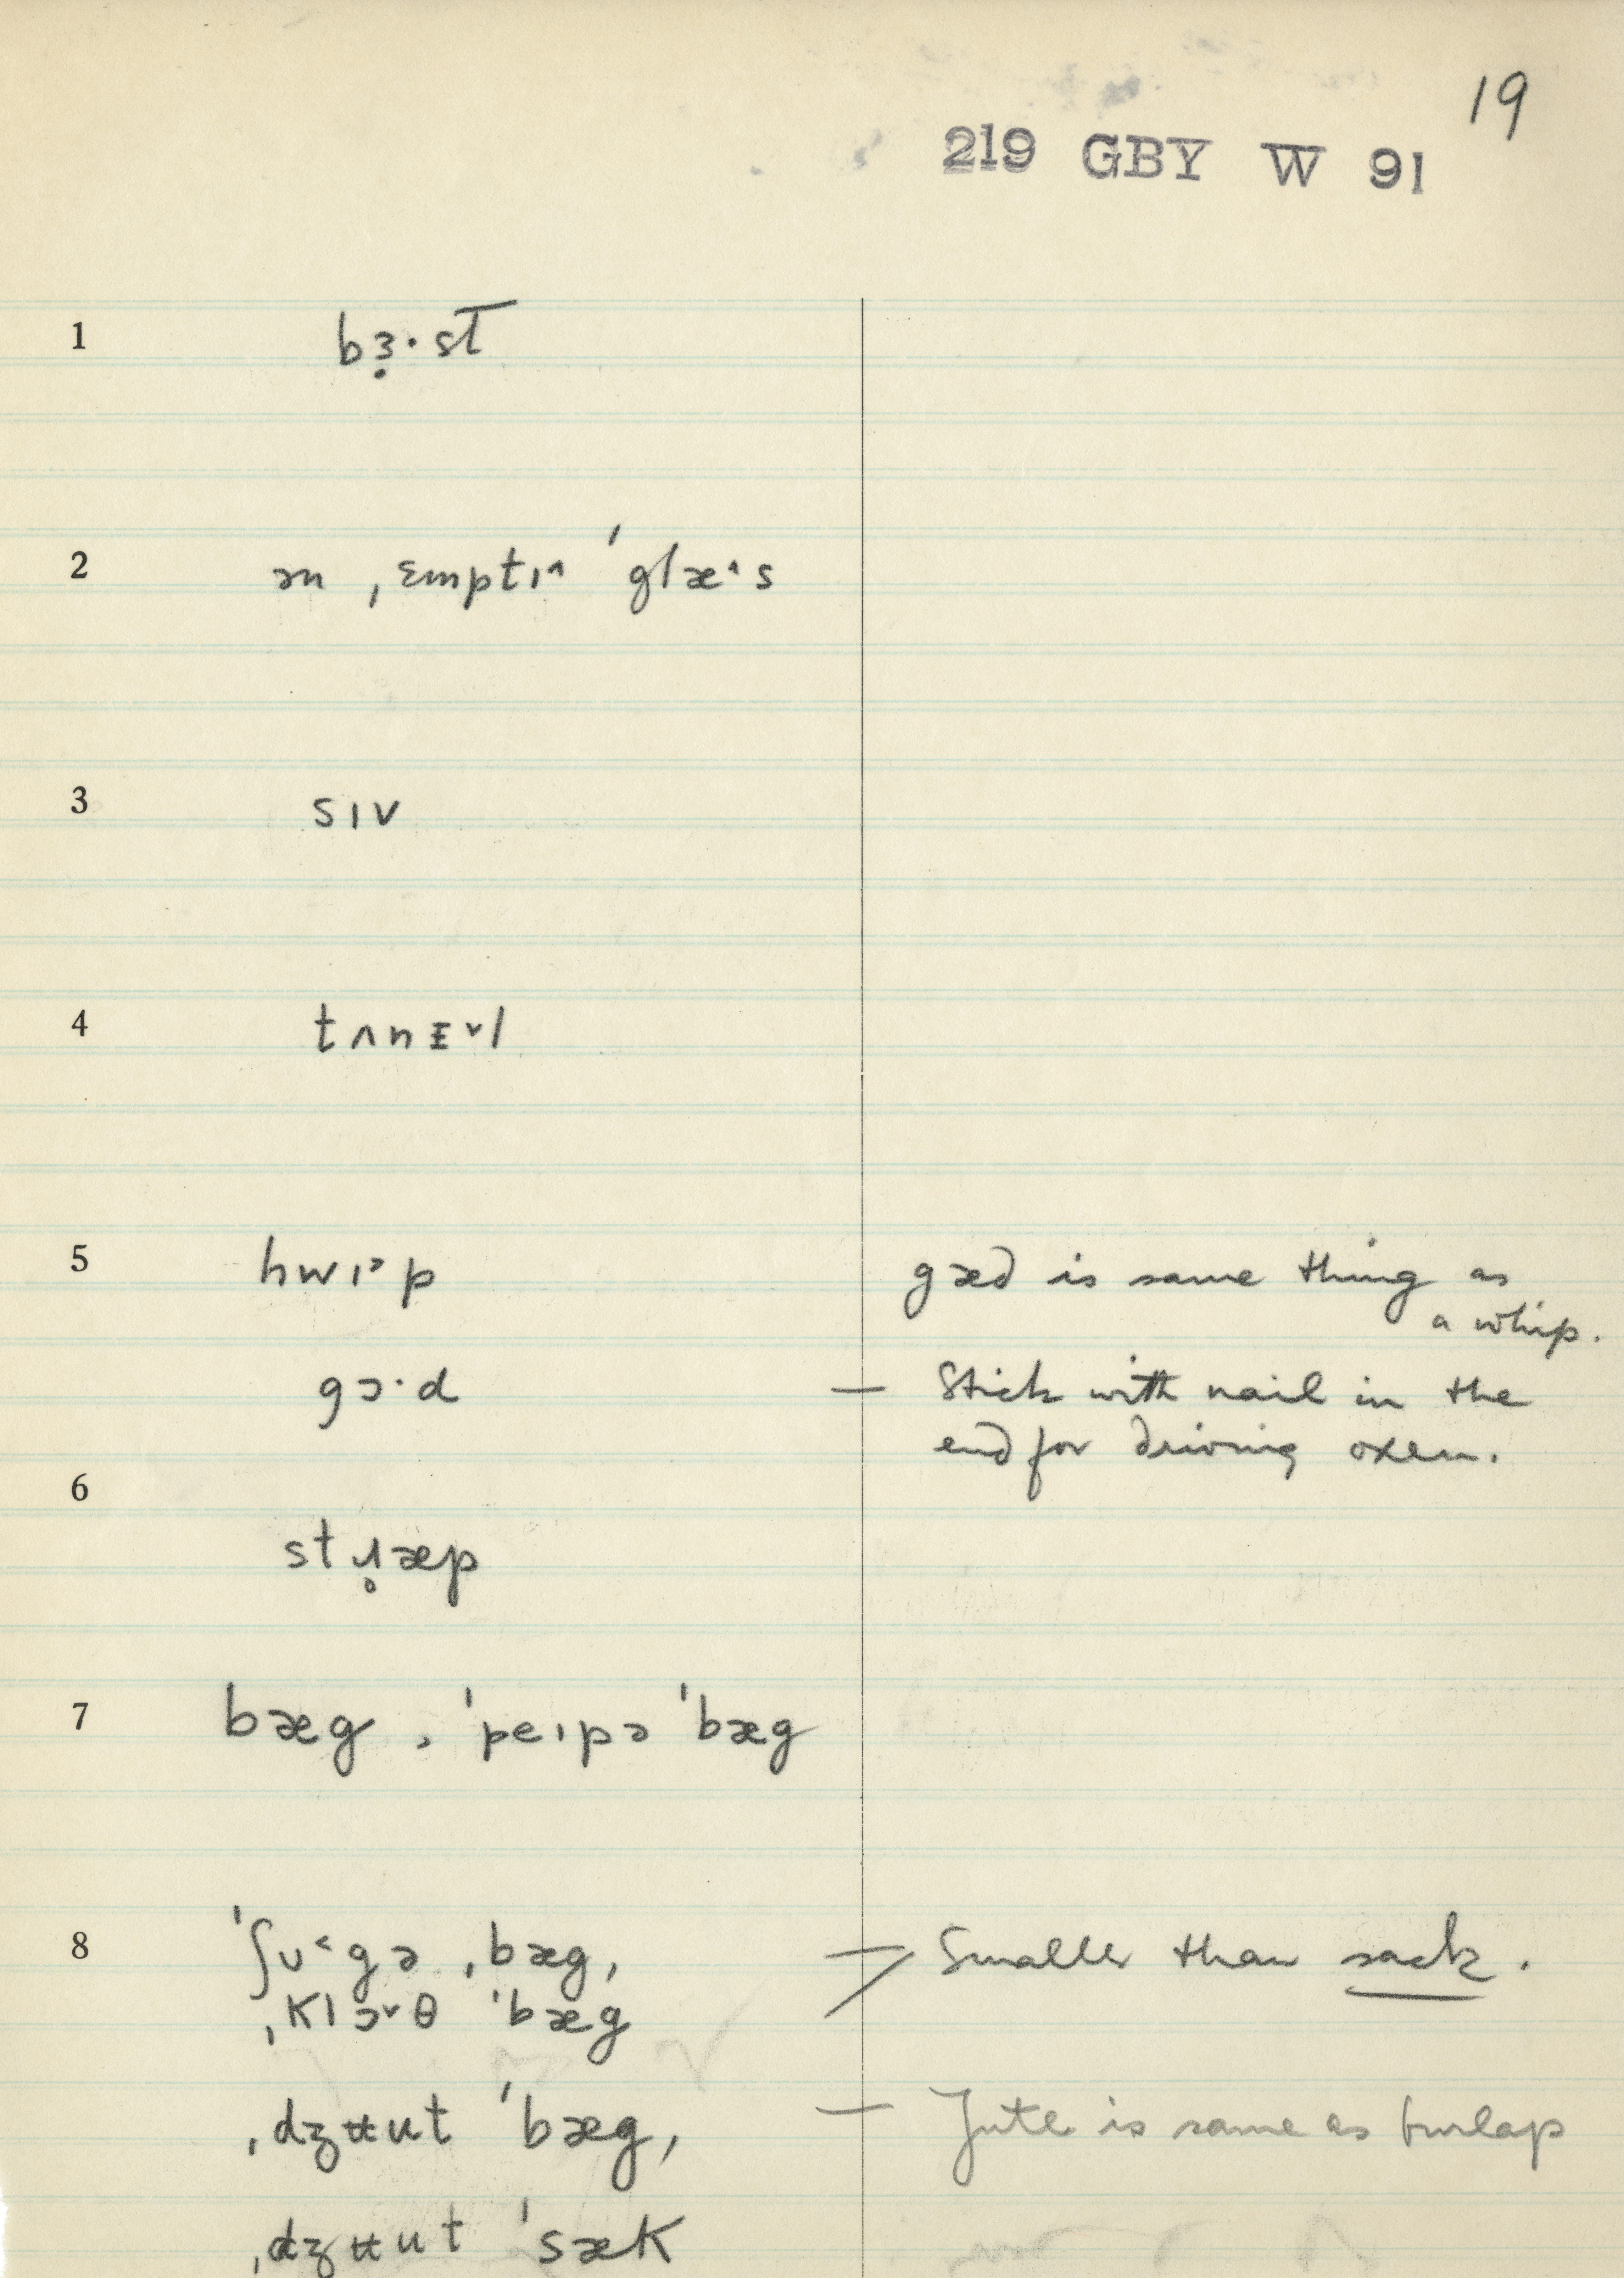 19
219 GBY W 91
1 bɜ̣·st̅
2 ən ˌɛmptɪ^ ˈglæ^s
3 sɪv
4 tʌnᴇˇl
5 hwɪᵊp gæd is same thing as
a whip.
gɔ·d — Stick with nail in the
end for driving oxen.
6
stɹ̥æp
7 bæg, ˈpeɪpə ˈbæg
8 ˈʃʊ˂gə ˌbæg, — Smaller than sack.
ˌklɔˇθ ˈbæg
ˌdʒʉut ˈbæg, — Jute is same as burlap
ˌdʒʉut ˈsæk